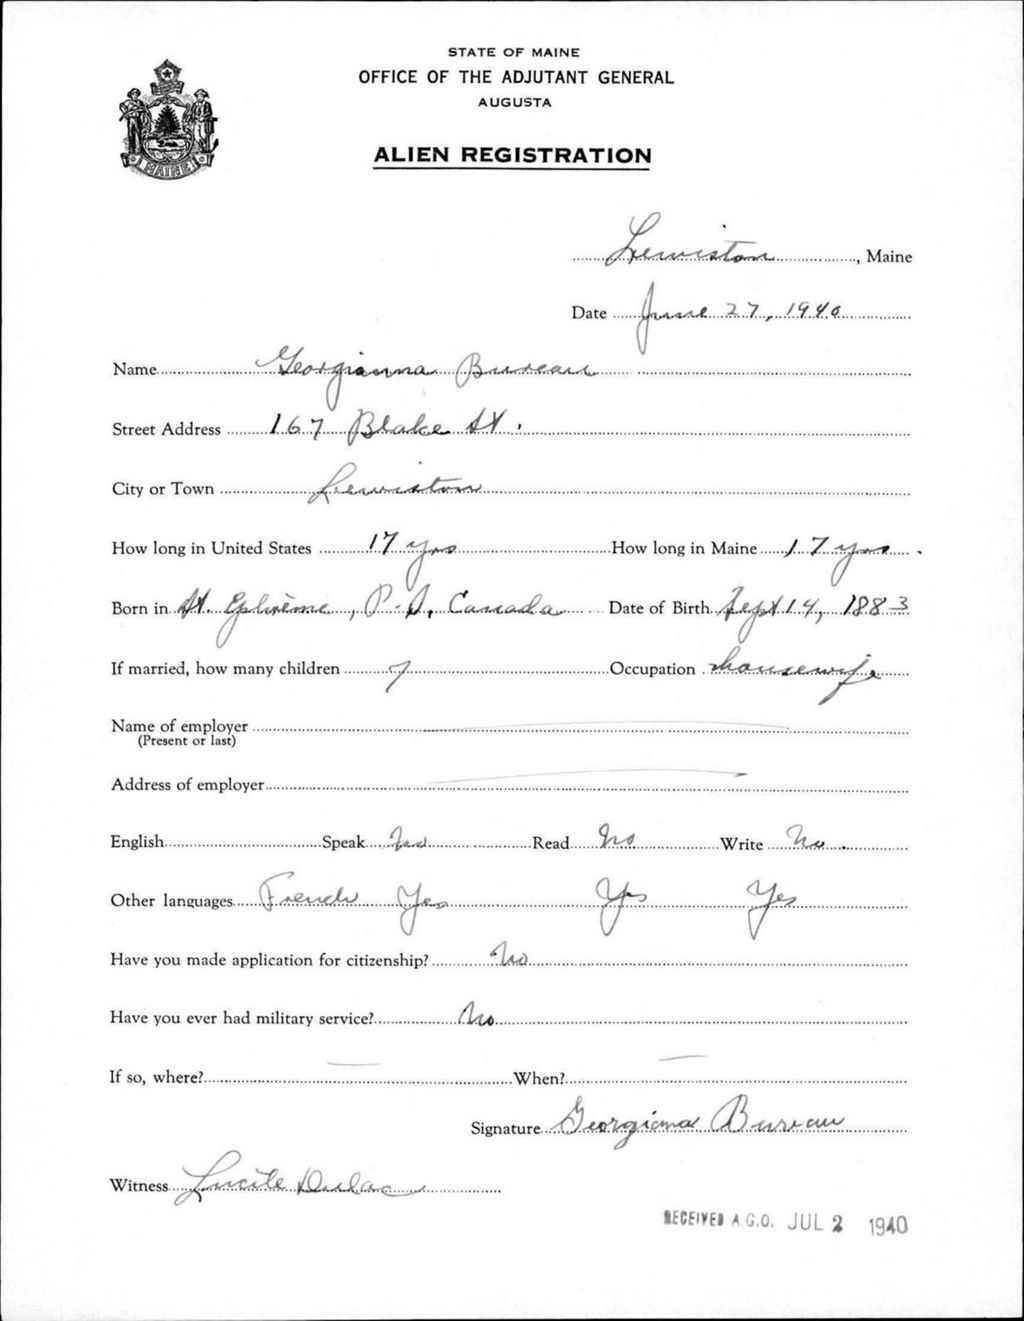 STATE OF MAINE
OFFICE OF THE ADJUTANT GENERAL
AUGUSTA
ALIEN REGISTRATION
MAINE
Lewiston, Maine
Date June 27, 1940
Name Georgianna Bureau
Street Address 167 Blake St.
City or Town Lewiston
How long in United States 17 yrs How long in Maine 17 yrs.
Born in St. Ephrème, P.Q. Canada Date of Birth Sept 14, 1883
If married, how many children 7 Occupation housewife
Name of employer
(Present or last)
Address of employer
English Speak No Read No Write No.
Other languages French Yes Yes Yes
Have you made application for citizenship? No
Have you ever had military service? No
If so, where? — When? —
Signature Georgiana Bureau
Witness Lucile Dulac
RECEIVED A.G.O. JUL 2 1940